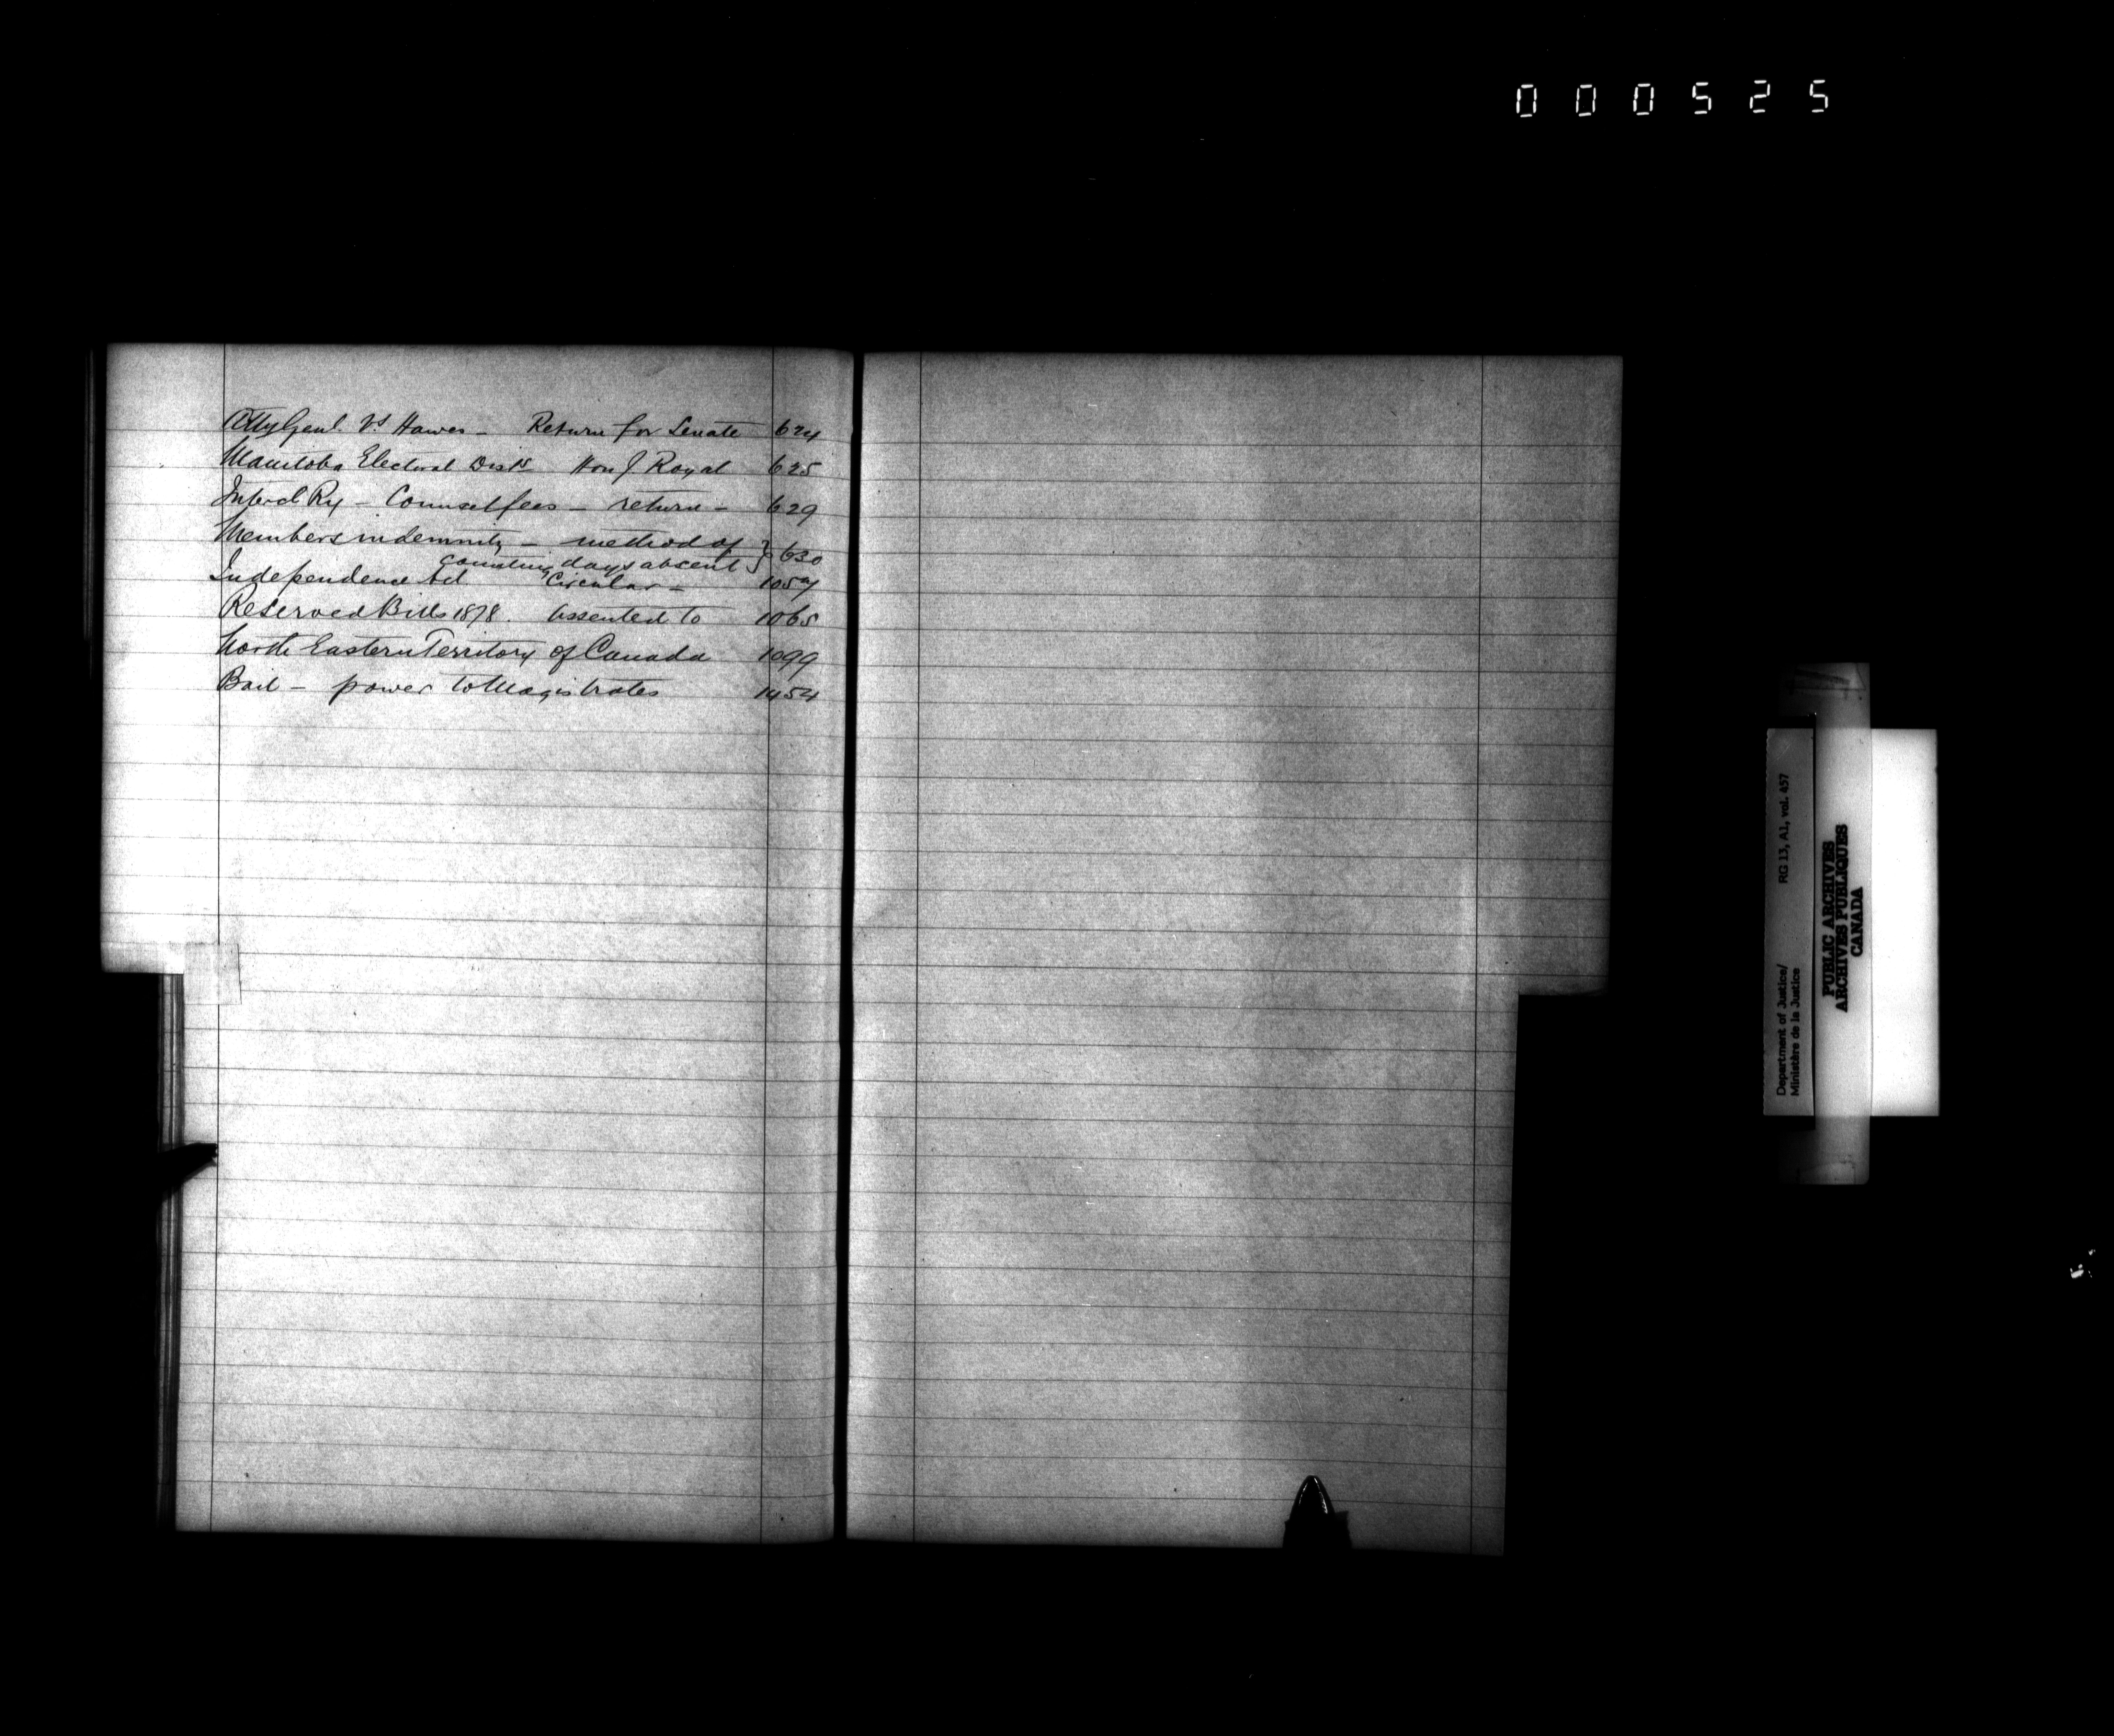 000525
Atty Genl. Vs Hawes - Return for Senate 624
Manitoba Electoral Dists Hon J. Royal 625
Intercl Ry - Counsel fees - return - 629
Members indemnity - method of } 630
counting days absent
Independence Act Circular - 1057
Reserved Bills 1878. Assented to 1065
North Eastern Territory of Canada 1099
Bail - power to Magistrates 1454
Department of Justice/ RG 13, A1, vol. 457
Ministère de la Justice
PUBLIC ARCHIVES
ARCHIVES PUBLIQUES
CANADA